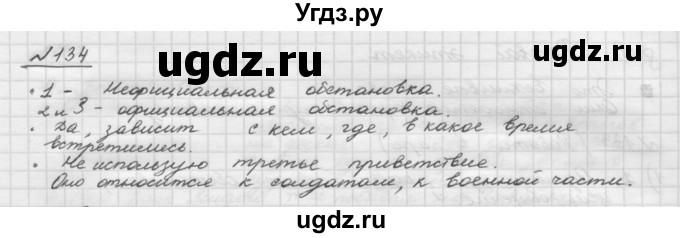 Угдз.ру
№134
ugdz.ru
ugdz.ru
• 1 - Неофициальная обстановка.
2 и 3 - официальная обстановка.
• Да, зависит с кем, где, в какое время
встретились.
ugdz.ru
ugdz.ru
• Не использую третье приветствие.
Оно относится к солдатам, к военной части.
ugdz.ru
ugdz.ru
Угдз.ру